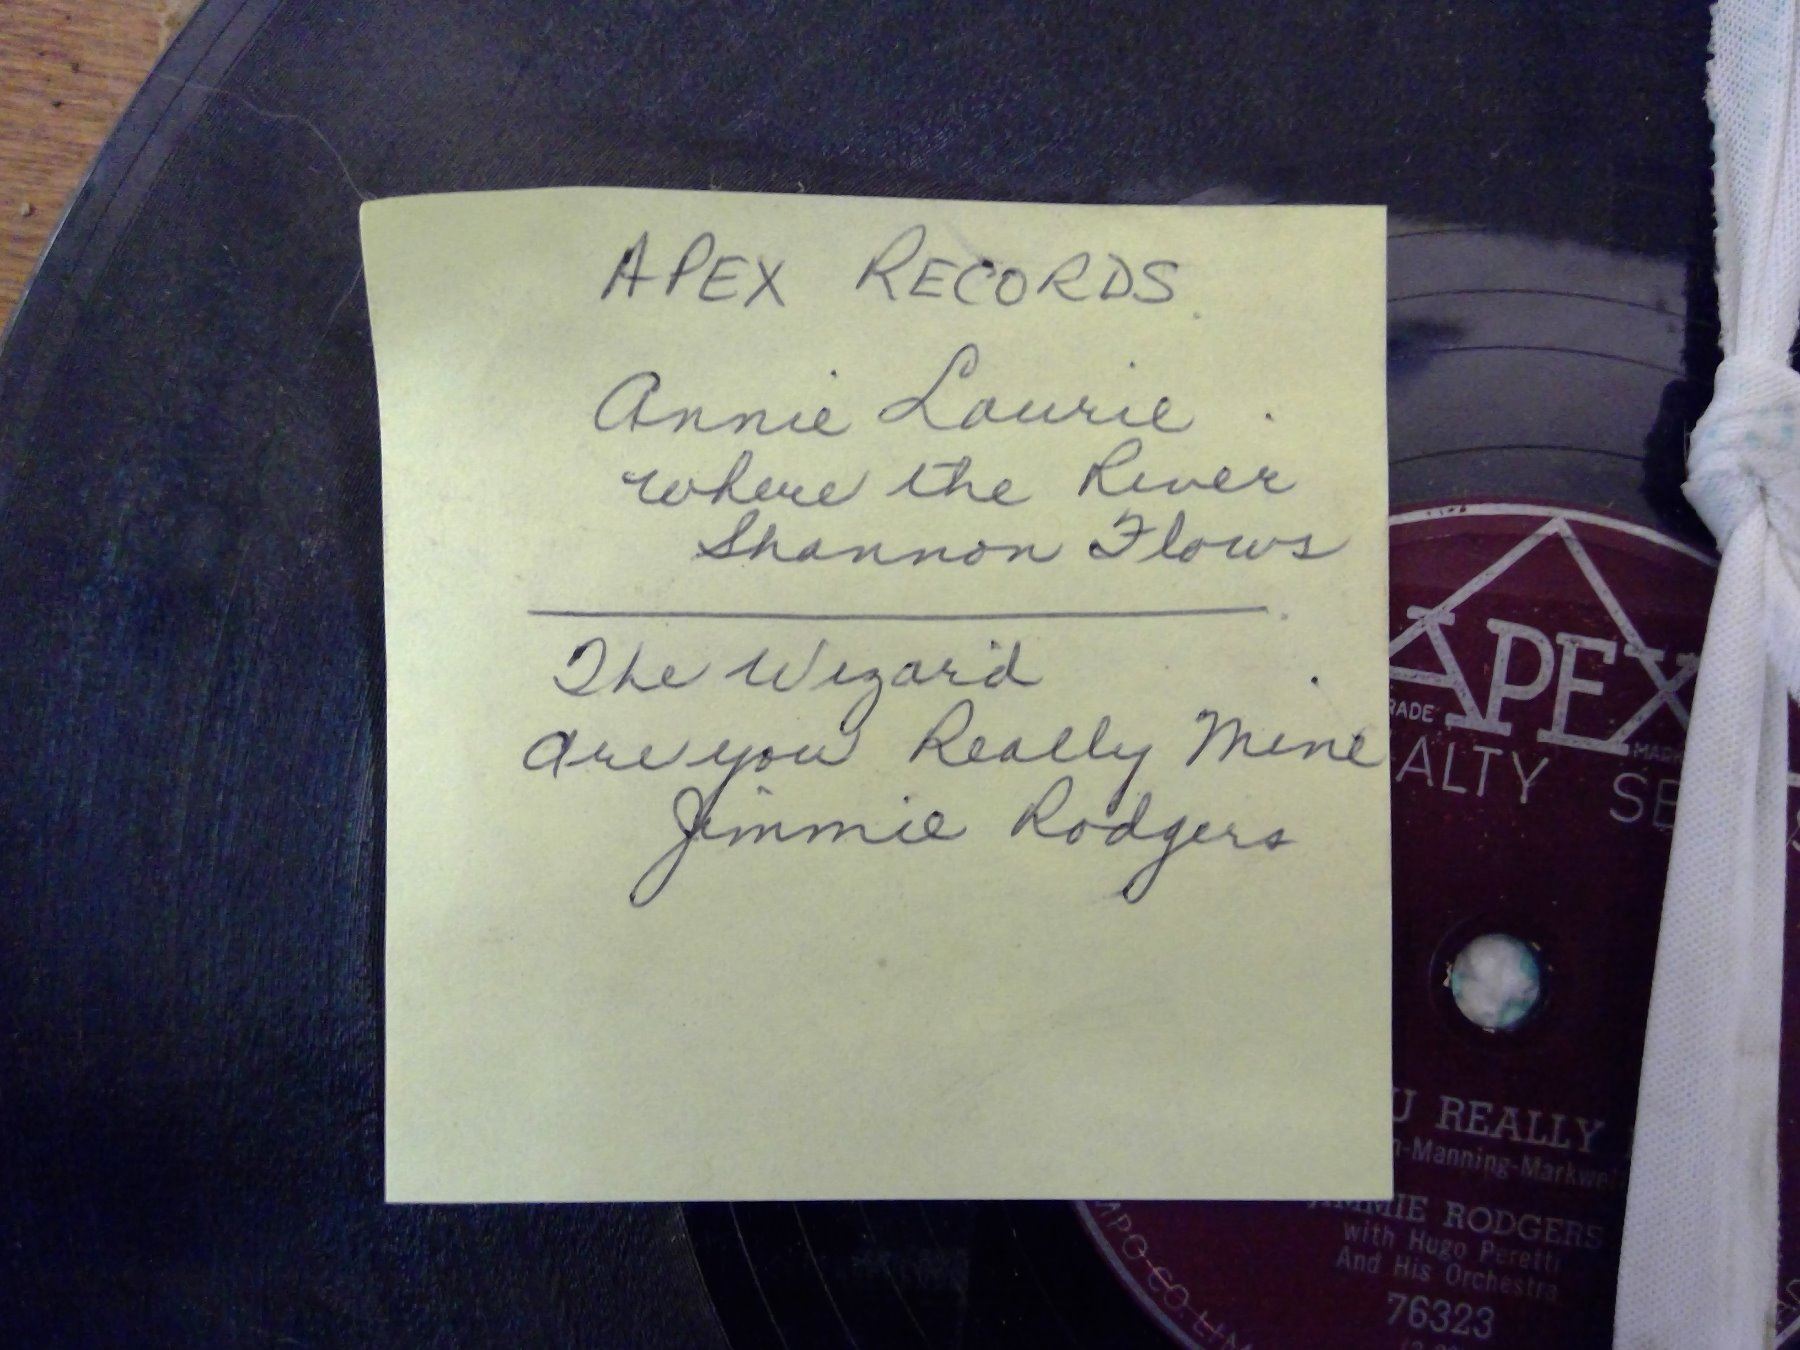 APEX RECORDS
Annie Laurie
Where the River
Shannon Flows
The Wizard
Are you Really Mine
Jimmie Rodgers
APEX
RADE MARK
ALTY SE
U REALLY
n-Manning-Markwel
MMIE RODGERS
with Hugo Peretti
And His Orchestra
76323
MPO CO LIM